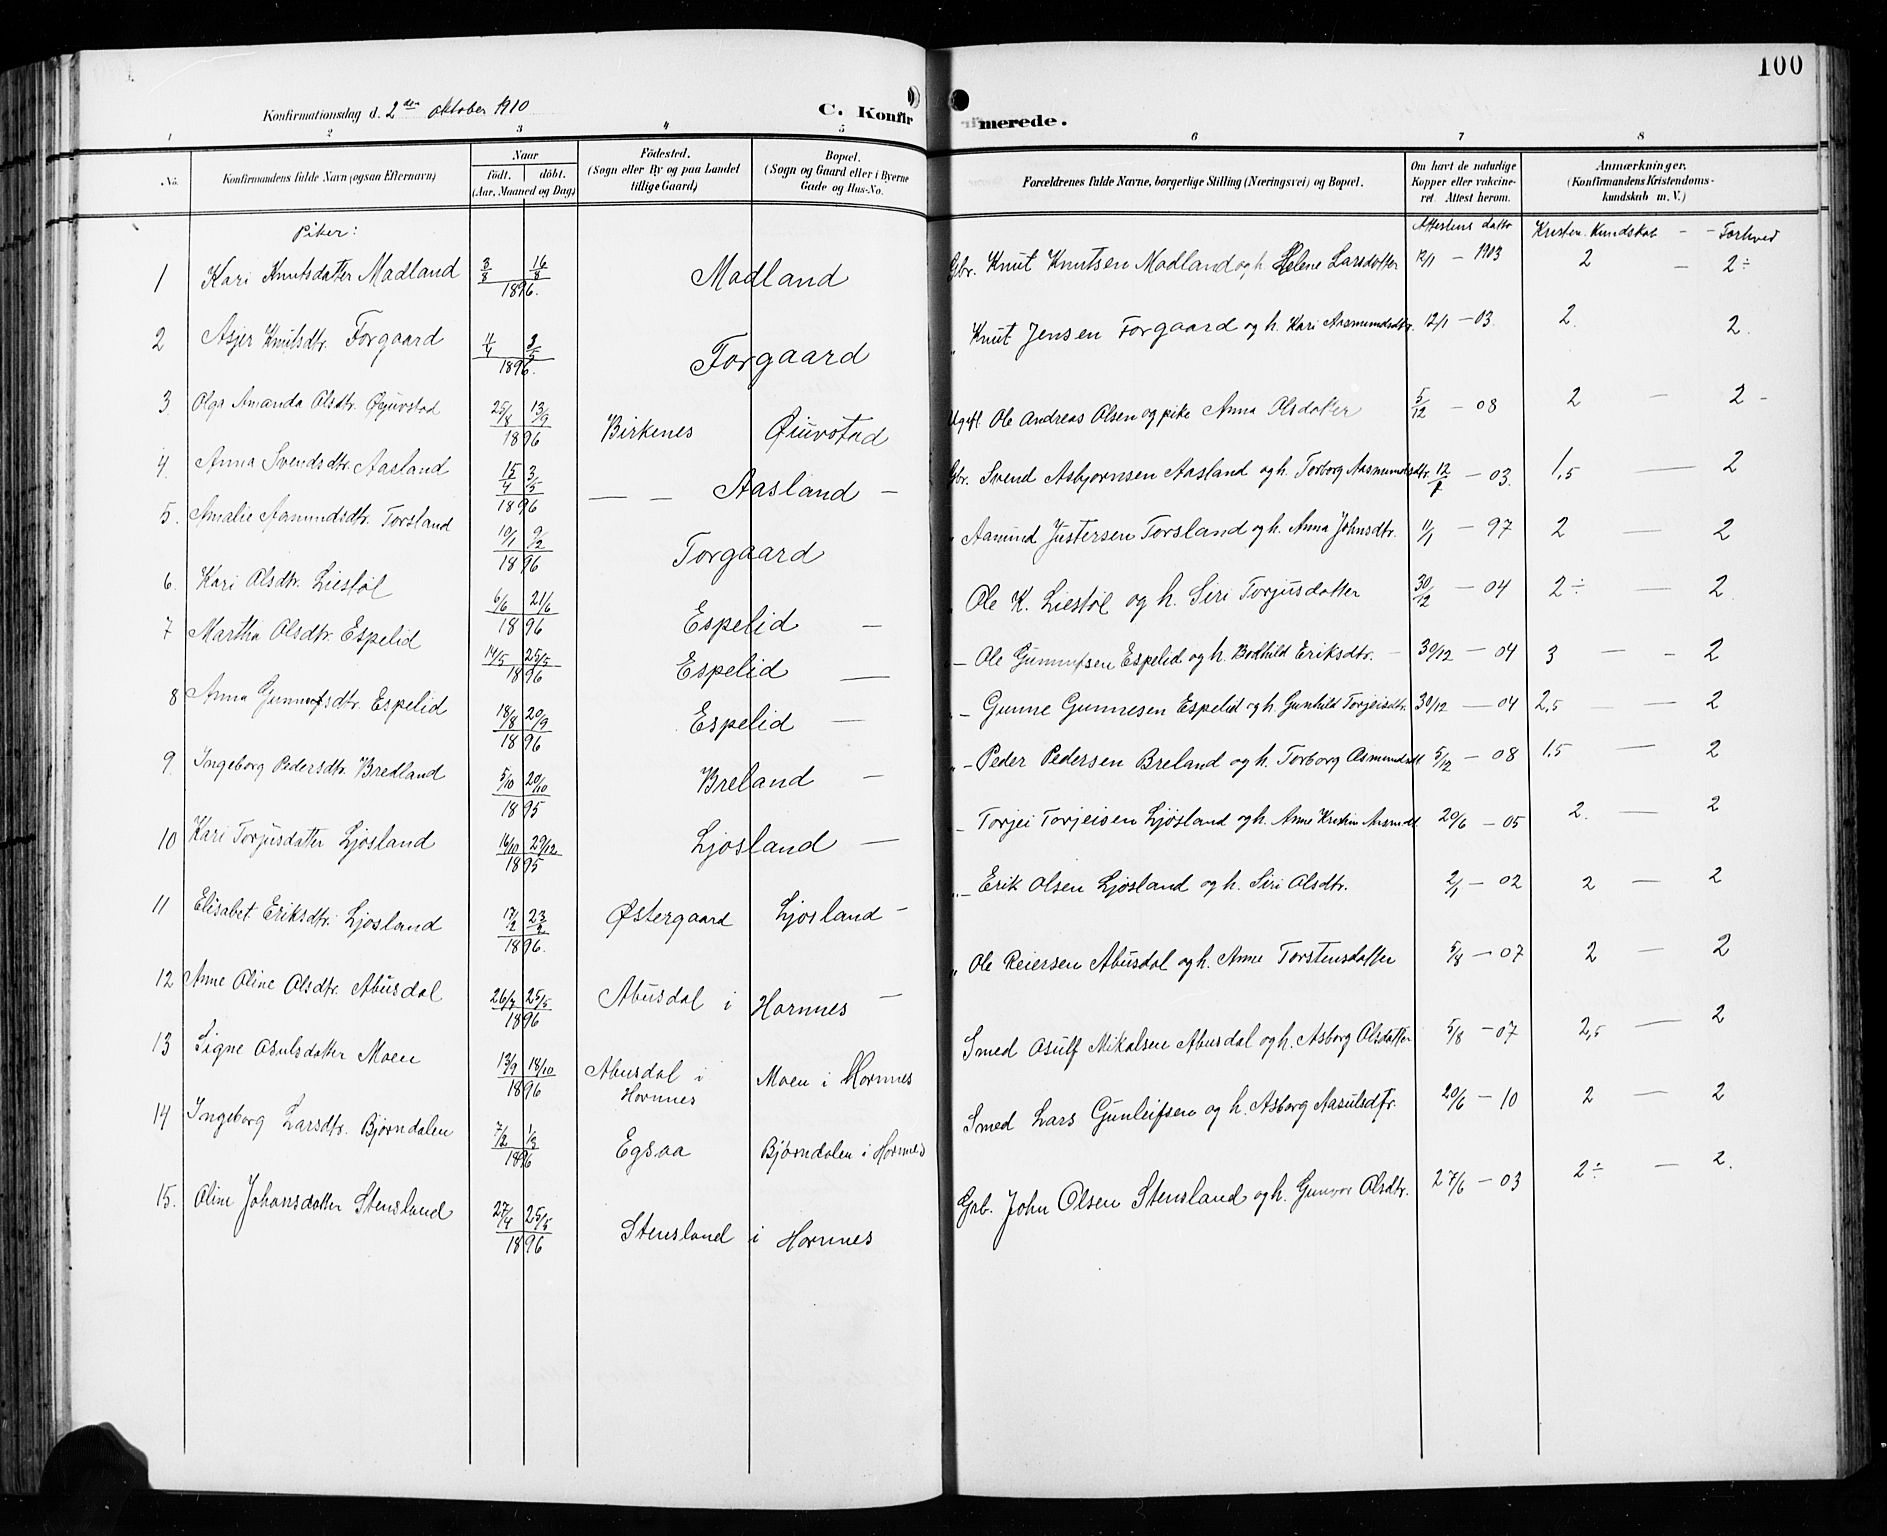 100
Konfirmationsdag d. 2den oktober 1910
C. Konfirmerede.
1 2 3 4 5 6 7 8
No. Konfirmandens fulde Navn (ogsaa Efternavn) Naar født. døbt. (Aar, Maaned og Dag) Födested. (Sogn eller By og paa Landet tillige Gaard) Bopæl. (Sogn og Gaard eller i Byerne Gade og Hus-No. Forældrenes fulde Navne, borgerlige Stilling (Næringsvei) og Bopæl. Om havt de naturlige Kopper eller vakcineret. Attest herom. Anmærkninger. (Konfirmandens Kristendomskundskab m. V.)
Piker: Attestens datto Kristen. Kundskab - - Forhved
1 Kari Knutsdatter Madland 3/8 16/8 1896. Madland Gbr. Knut Knutsen Madland og h. Helene Larsdatter 12/1 - 1903 2 - 2÷
2 Asjer Knutsdtr. Forgaard 11/4 3/5 1896. Forgaard " Knut Jensen Forgaard og h. Kari Aasmundsdtr. 12/1 - 03. 2. 2.
3. Olga Amanda Olsdtr. Øiuvstad 25/8 13/9 1896 Birkenes Øiuvstad Ugift Ole Andreas Olsen og pike Anna Olsdatter 5/12 - 08 2 - 2 -
4. Anna Svendsdtr. Aasland 15/4 3/5 1896 — — Aasland - Gbr. Svend Asbjørnsen Aasland og h. Torborg Aasmundsdtr. 12/1 - 03. 1,5 — 2
5. Amalie Aamundsdtr. Torsland 10/1 9/2 1896 Torgaard " Aamund Justersen Torsland og h. Anna Johnsdtr. 11/1 - 97 2 — 2
6. Kari Olsdtr. Liestøl 6/6 21/6 1896 Espelid — Ole K. Liestøl og h. Siri Torjusdatter 30/12 - 04 2÷ — 2
7 Martha Olsdtr. Espelid 14/5 25/5 1896 Espelid — - Ole Gunnufsen Espelid og h. Bodhild Eriksdtr. - 30/12 - 04 3 — - 2
8 Anna Gunnufsdtr. Espelid 18/8 20/9 1896 Espelid — - Gunne Gunnesen Espelid og h. Gunhild Torjeisdtr. 30/12 — 04 2,5 — — 2
9. Ingeborg Pedersdtr. Bredland 5/10 20/10 1895 Breland — - Peder Pedersen Breland og h. Torborg Asmundsdt 5/12 - 08 1,5 — 2
10 Kari Torjusdatter Ljosland 16/10 29/12 1895 Ljosland — - Torjei Torjeisen Ljøsland og h. Anne Kristin Aasmdt 20/6 - 05 2. — 2
11 Elisabet Eriksdtr. Ljosland 17/2 23/2 1896. Østergaard Ljosland - - Erik Olsen Ljøsland og h. Siri Olsdtr. 2/1 - 02 2 — 2
12 Anne Oline Olsdtr. Abusdal 26/3 25/5 1896 Abusdal i Hornnes — " Ole Reiersen Abusdal og h. Anne Torstensdatter 5/8 - 07 2 — 2
13 Signe Osulsdatter Moen 13/9 18/10 1896 Abusdal i Hornnes Moen i Hornnes Smed Osulf Mikalsen Abusdal og h. Asborg Olsdatter 5/8 - 07 2,5 — 2
14 Ingeborg Larsdtr. Bjørndalen 7/2 1/3 1896 Egsaa Bjørndalen i Hornnes Smed Lars Gunleifsen og h. Asborg Aasulsdtr. 20/6 - 10 2 — 2
15. Oline Johansdatter Stensland 27/4 25/5 1896 Stensland i Hornnes Grb. John Olsen Stensland og h. Gunvor Olsdtr. 27/6 - 03 2÷ — 2.